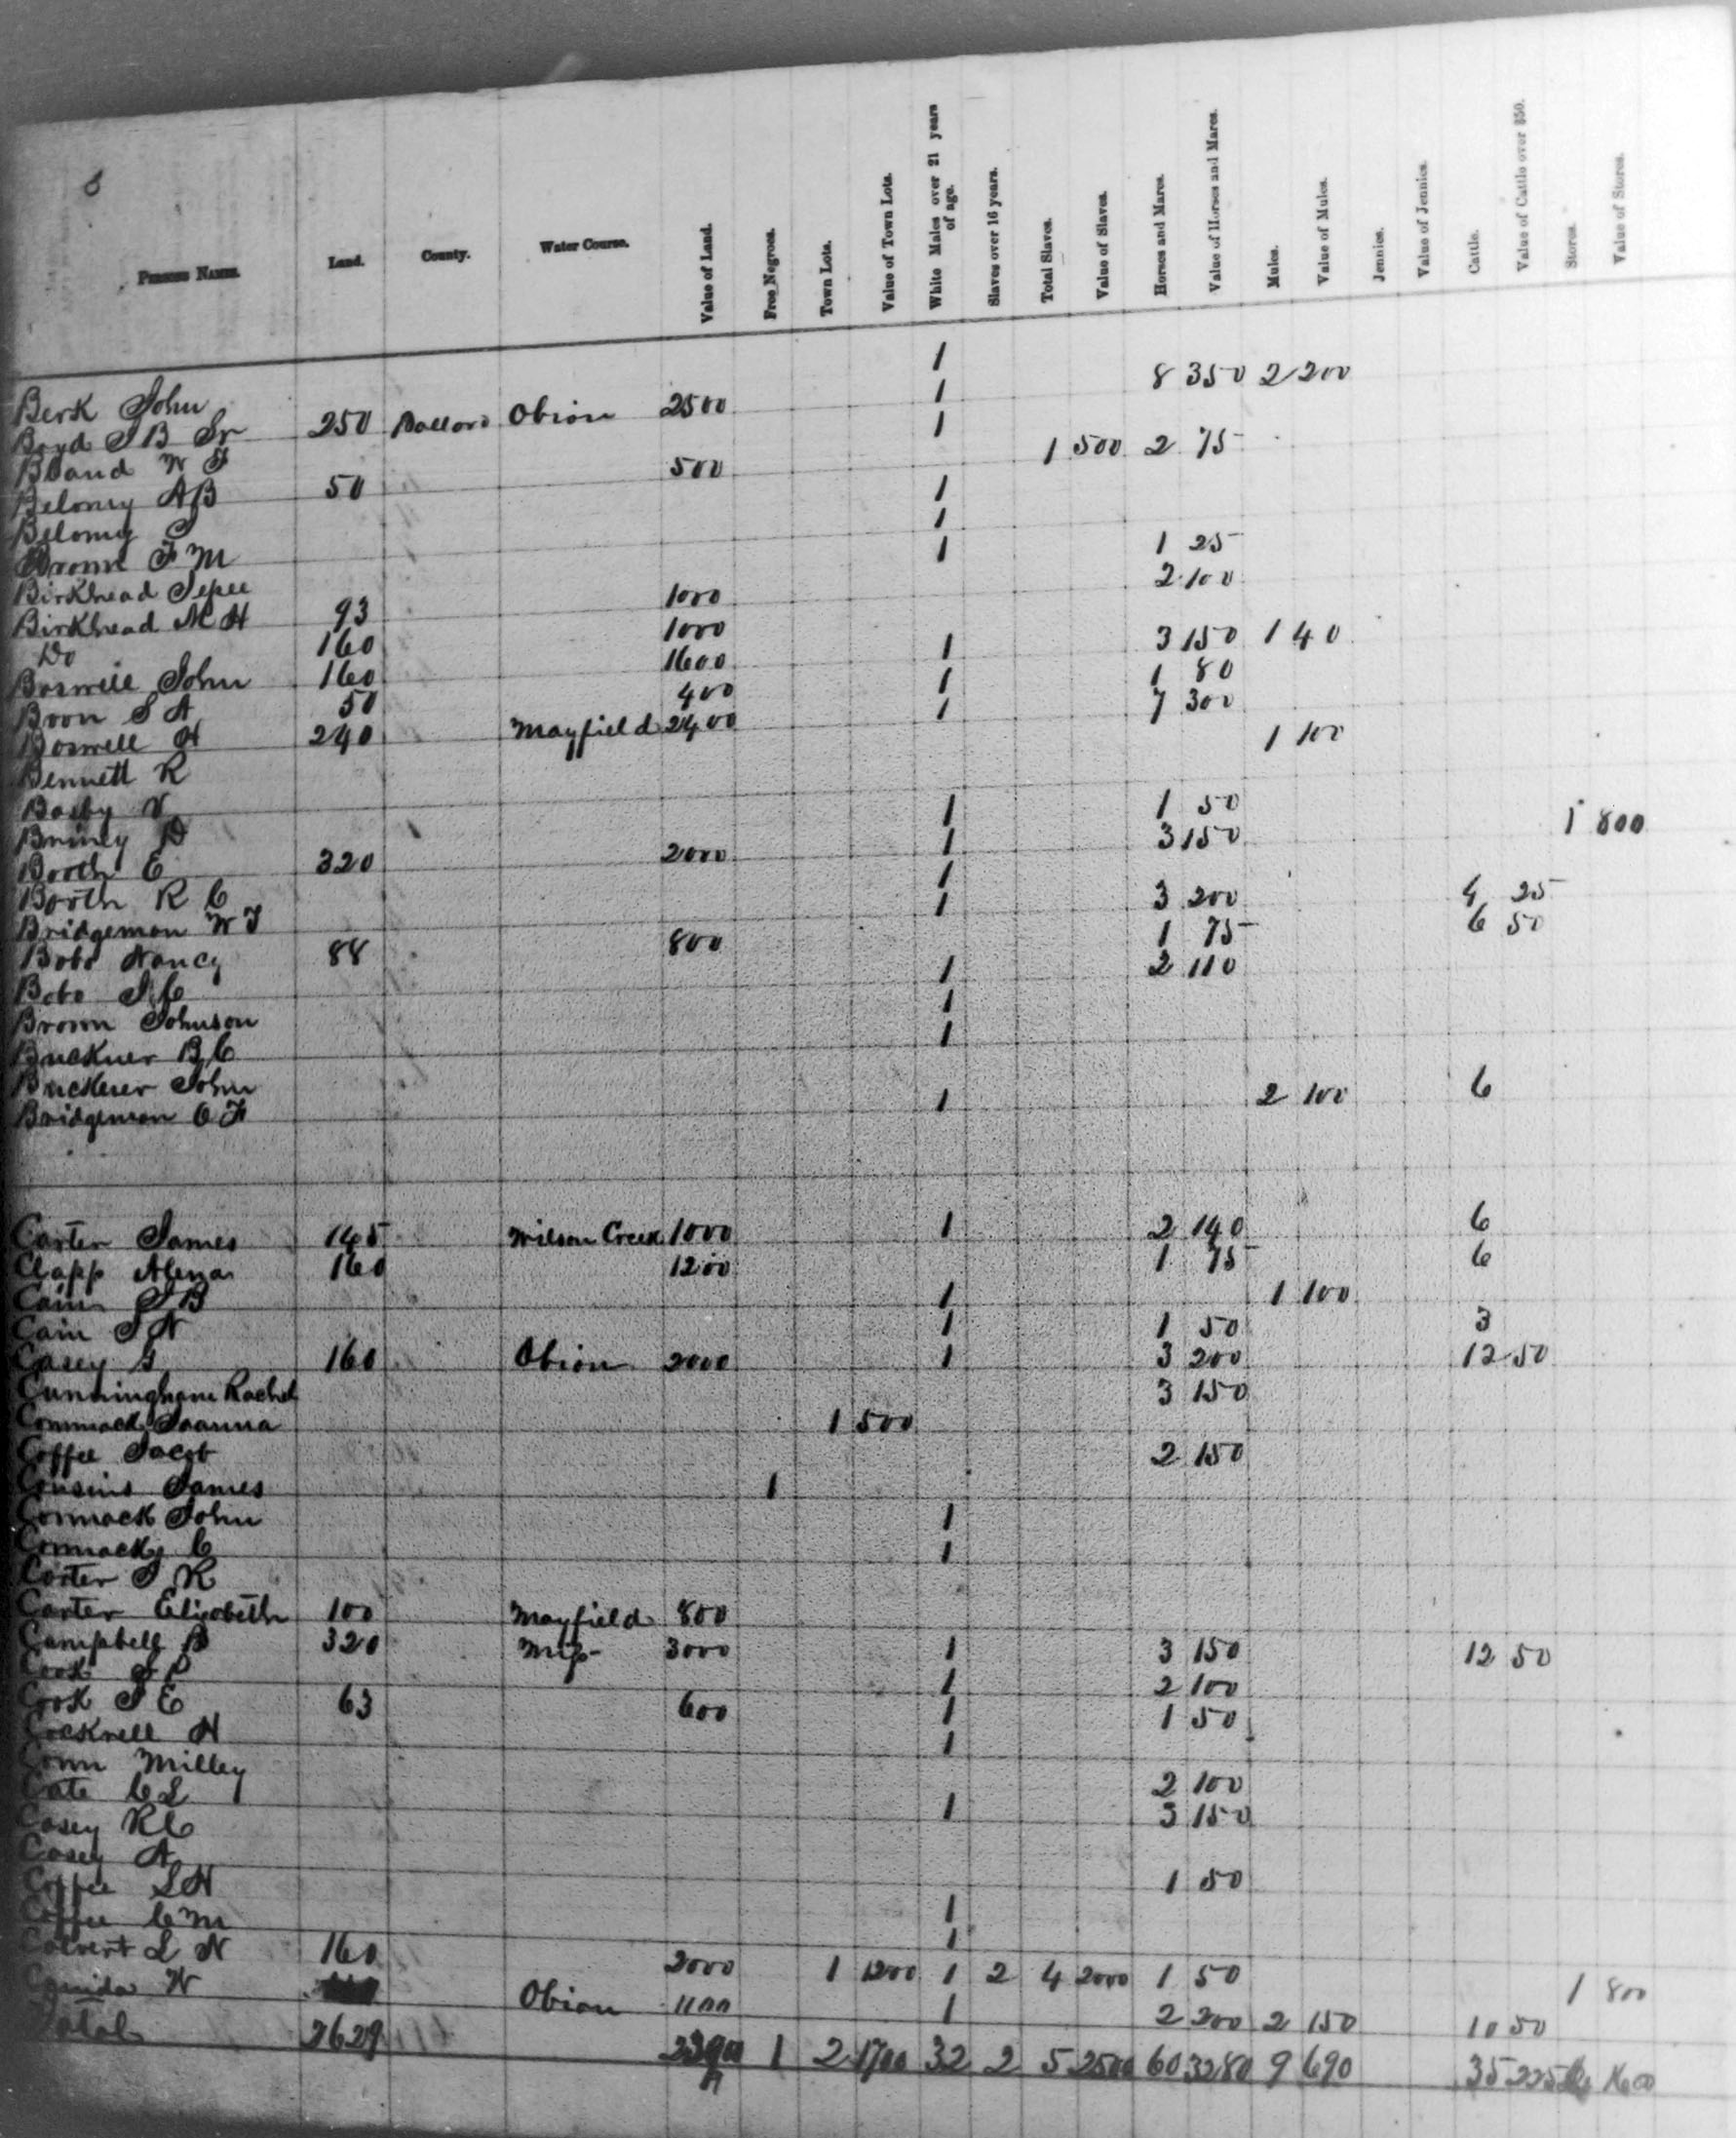 8
Persons Names. Land. County. Water Course. Value of Land. Free Negroes. Town Lots. Value of Town Lots. White Males over 21 years of age. Slaves over 16 years. Total Slaves. Value of Slaves. Horses and Mares. Value of Horses and Mares. Mules. Value of Mules. Jennies. Value of Jennies. Cattle. Value of Cattle over $50. Stores. Value of Stores.
Berk John 1
Boyd J B Sr 250 Ballard Obion 2500 1 8 350 2 200
Bland W J 1
Belomy A B 50 500 1 500 2 75
Belomy J 1
Brown F M 1
Birkhead 1 1 25
Birkhead M H 93 1000 2 100
Do 160 1000
Boswell John 160 1600 1 3 150 1 40
Boon S A 50 400 1 1 80
Boswell H 240 Mayfield 2400 1 7 300
Bennett R 1 100
Basby V
Briney D 1 1 50
Booth E 320 2000 1 3 150 1 800
Booth R C 1
Bridgeman W J 1 3 200 4 25
Bobo Nancy 88 800 1 75 6 50
Bobo J C 1 2 110
Brown Johnson 1
Buckner B C 1
Buckner John
Bridgeman O F 1 2 100 6
Carter James 145 Wilson Creek 1000 1 2 140 6
Clapp Alexa 160 1200 1 75 6
Cain J B 1 1 100
Cain J N 1 1 50 3
Casey G 160 Obion 2000 1 3 200 12 50
Cunningham Rachel 3 150
Commack Joanna 1 500
Coffee Jacob 2 150
Cousins James 1
Cormack John 1
Cormack C 1
Carter J R
Carter Elizabeth 100 Mayfield 800
Campbell B 320 Miss 3000 1 3 150 12 50
Cook J P 1 2 100
Cook J E 63 600 1 1 50
Cocknell H 1
Conn Milley
Cate C L 2 100
Casey R C 1 3 150
Casey A
Coffee L H 1 50
Coffee C M 1
Calvert L N 160 1
W 2000 1 1200 1 2 4 2000 1 50 1 800
Obion 1100 1 2 200 2 150 10 50
Total 2629 1 2 1700 32 2 5 2500 60 3280 9 690 35 225 1600